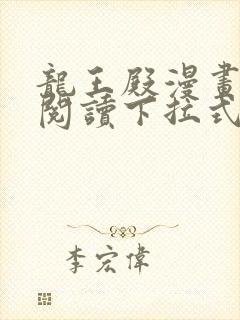 龍王殿漫畫
閱讀下拉式
李宏偉